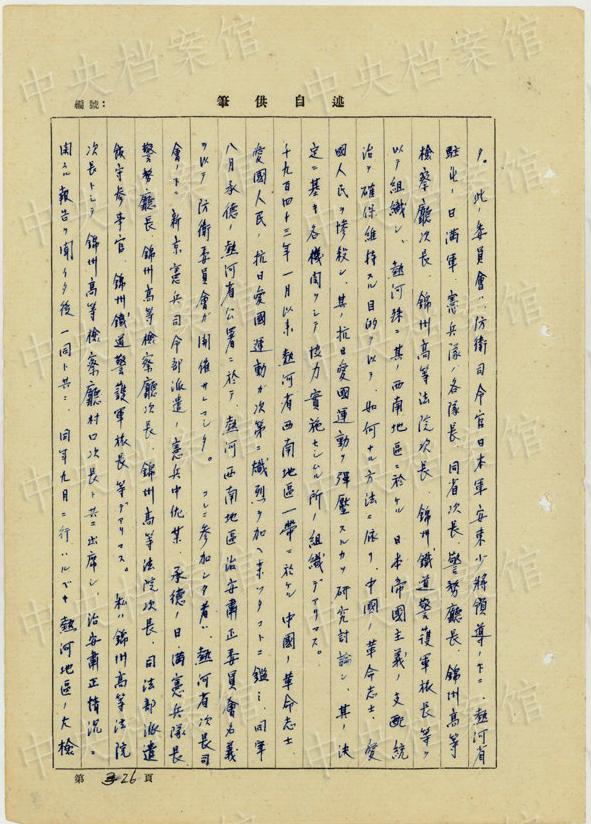 自述供筆
編號：
タ。此ノ委員會ハ防衛司令官日本軍安東少將領導ノ下ニ、熱河省
駐屯ノ日滿軍、憲兵隊ノ各隊長、同省次長、警務廳長、錦州高等
檢察廳次長、錦州高等法院次長、錦州鐵道警護軍旅長等ヲ
以テ組織シ、熱河殊ニ其ノ西南地區ニ於ケル日本帝國主義ノ支配統
治ヲ確保維持スル目的ヲ以テ、如何ナル方法ニ依リ、中國ノ革命志士、愛
國人民ヲ慘殺シ、其ノ抗日愛國運動ヲ彈壓スルカヲ研究討論シ、其ノ決
定ニ基キ各機關ヲシテ協力實施セシムル所ノ組織デアリマス。
千九百四十三年一月以來、熱河省西南地區一帶ニ於ケル中國ノ革命志士、
愛國人民ノ抗日愛國運動ガ次第ニ熾烈ヲ加ヘ來ツタコトニ鑑ミ、同年
八月承德ノ熱河省公署ニ於テ、熱河西南地區治安肅正委員會名義
ヲ以テ防衛委員會ガ開催サレマシタ。コレニ參加シタ者ハ、熱河省次長司
會ノ下ニ、新京憲兵司令部派遣ノ憲兵中佐某、承德ノ日、滿憲兵隊長
警務廳長、錦州高等檢察廳次長、錦州高等法院次長、司法部派遣
飯守參事官、錦州鐵道警護軍旅長等デアリマス。私ハ錦州高等法院
次長トシテ、錦州高等檢察廳村口次長ト共ニ出席シ、治安肅正情況ニ
関スル報告ヲ聞イタ後、一同ト共ニ、同年九月ニ行ハルベキ熱河地區ノ大檢
第 26 頁
中央档案馆